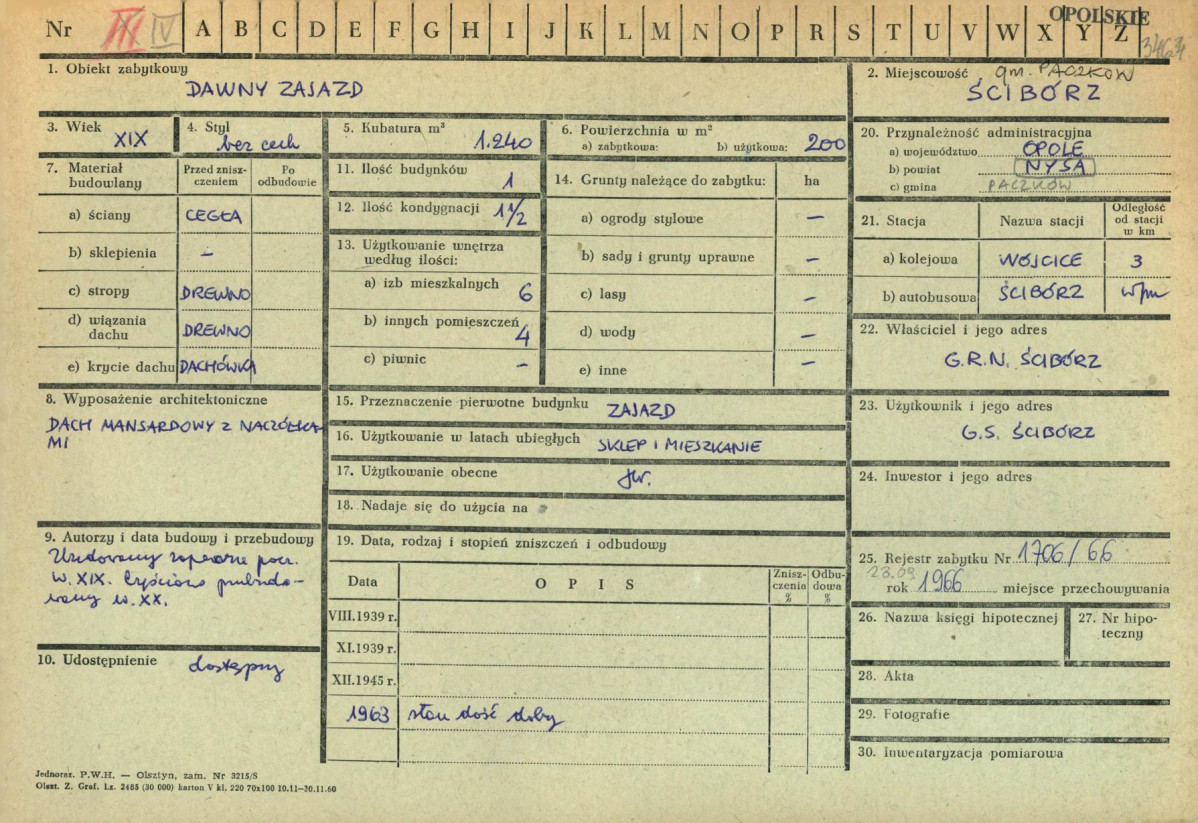 OPOLSKIE
Nr III IV A B C D E F G H I J K L M N O P R S T U V W X Y Z
3464
1. Obiekt zabytkowy
DAWNY ZAJAZD
2. Miejscowość gm. PACZKÓW
ŚCIBÓRZ
3. Wiek XIX
4. Styl bez cech
5. Kubatura m³ 1.240
6. Powierzchnia w m²
a) zabytkowa: b) użytkowa: 200
20. Przynależność administracyjna
a) województwo OPOLE
b) powiat NYSA
c) gmina PACZKÓW
7. Materiał budowlany
Przed zniszczeniem
Po odbudowie
a) ściany CEGŁA
b) sklepienia –
c) stropy DREWNO
d) wiązania dachu DREWNO
e) krycie dachu DACHÓWKA
11. Ilość budynków 1
12. Ilość kondygnacji 1 1/2
13. Użytkowanie wnętrza
według ilości:
a) izb mieszkalnych 6
b) innych pomieszczeń 4
c) piwnic –
14. Grunty należące do zabytku: ha
a) ogrody stylowe –
b) sady i grunty uprawne –
c) lasy –
d) wody –
e) inne –
21. Stacja Nazwa stacji Odległość od stacji w km
a) kolejowa WÓJCICE 3
b) autobusowa ŚCIBÓRZ w/m
22. Właściciel i jego adres
G.R.N. ŚCIBÓRZ
8. Wyposażenie architektoniczne
DACH MANSARDOWY Z NACZÓŁKA-
MI
15. Przeznaczenie pierwotne budynku ZAJAZD
16. Użytkowanie w latach ubiegłych SKLEP I MIESZKANIE
17. Użytkowanie obecne jw.
18. Nadaje się do użycia na
23. Użytkownik i jego adres
G.S. ŚCIBÓRZ
24. Inwestor i jego adres
9. Autorzy i data budowy i przebudowy
Zbudowany zapewne pocz.
w. XIX. Częściowo przebudo-
wany w. XX.
10. Udostępnienie dostępny
19. Data, rodzaj i stopień zniszczeń i odbudowy
Data OPIS Zniszczenia % Odbudowa %
VIII.1939 r.
XI.1939 r.
XII.1945 r.
1963 stan dość dobry
25. Rejestr zabytku Nr 1706/66
23.09
rok 1966 miejsce przechowywania
26. Nazwa księgi hipotecznej
27. Nr hipoteczny
28. Akta
29. Fotografie
30. Inwentaryzacja pomiarowa
Jednoraz. P.W.H. — Olsztyn, zam. Nr 3215/S
Olszt. Z. Graf. Lz. 2485 (30 000) karton V kl. 220 70x100 10.11–30.11.60